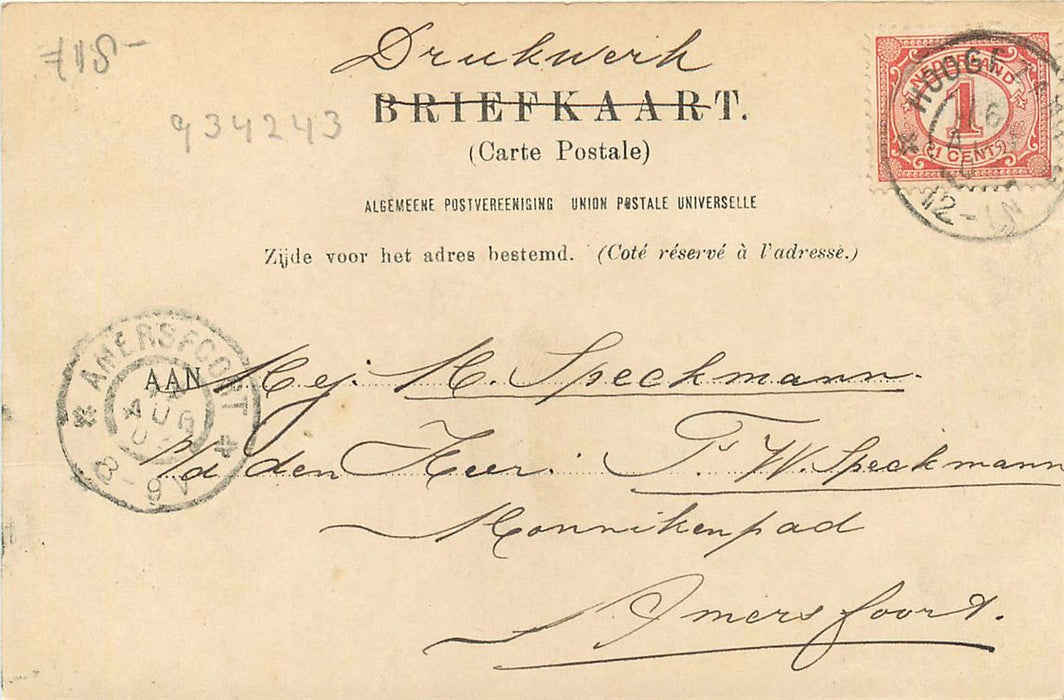 718-
Drukwerk
934243
BRIEFKAART.
(Carte Postale)
ALGEMEENE POSTVEREENIGING UNION POSTALE UNIVERSELLE
Zijde voor het adres bestemd. (Coté réservé à l'adresse.)
NEDERLAND
1
1 CENT
HOOGEZAND
12-1N
AMERSFOORT
AUG
8-9V
AAN Mej. M. Speckmann.
p/a den Heer. F. W. Speckmann
Monnikenpad
Amersfoort.